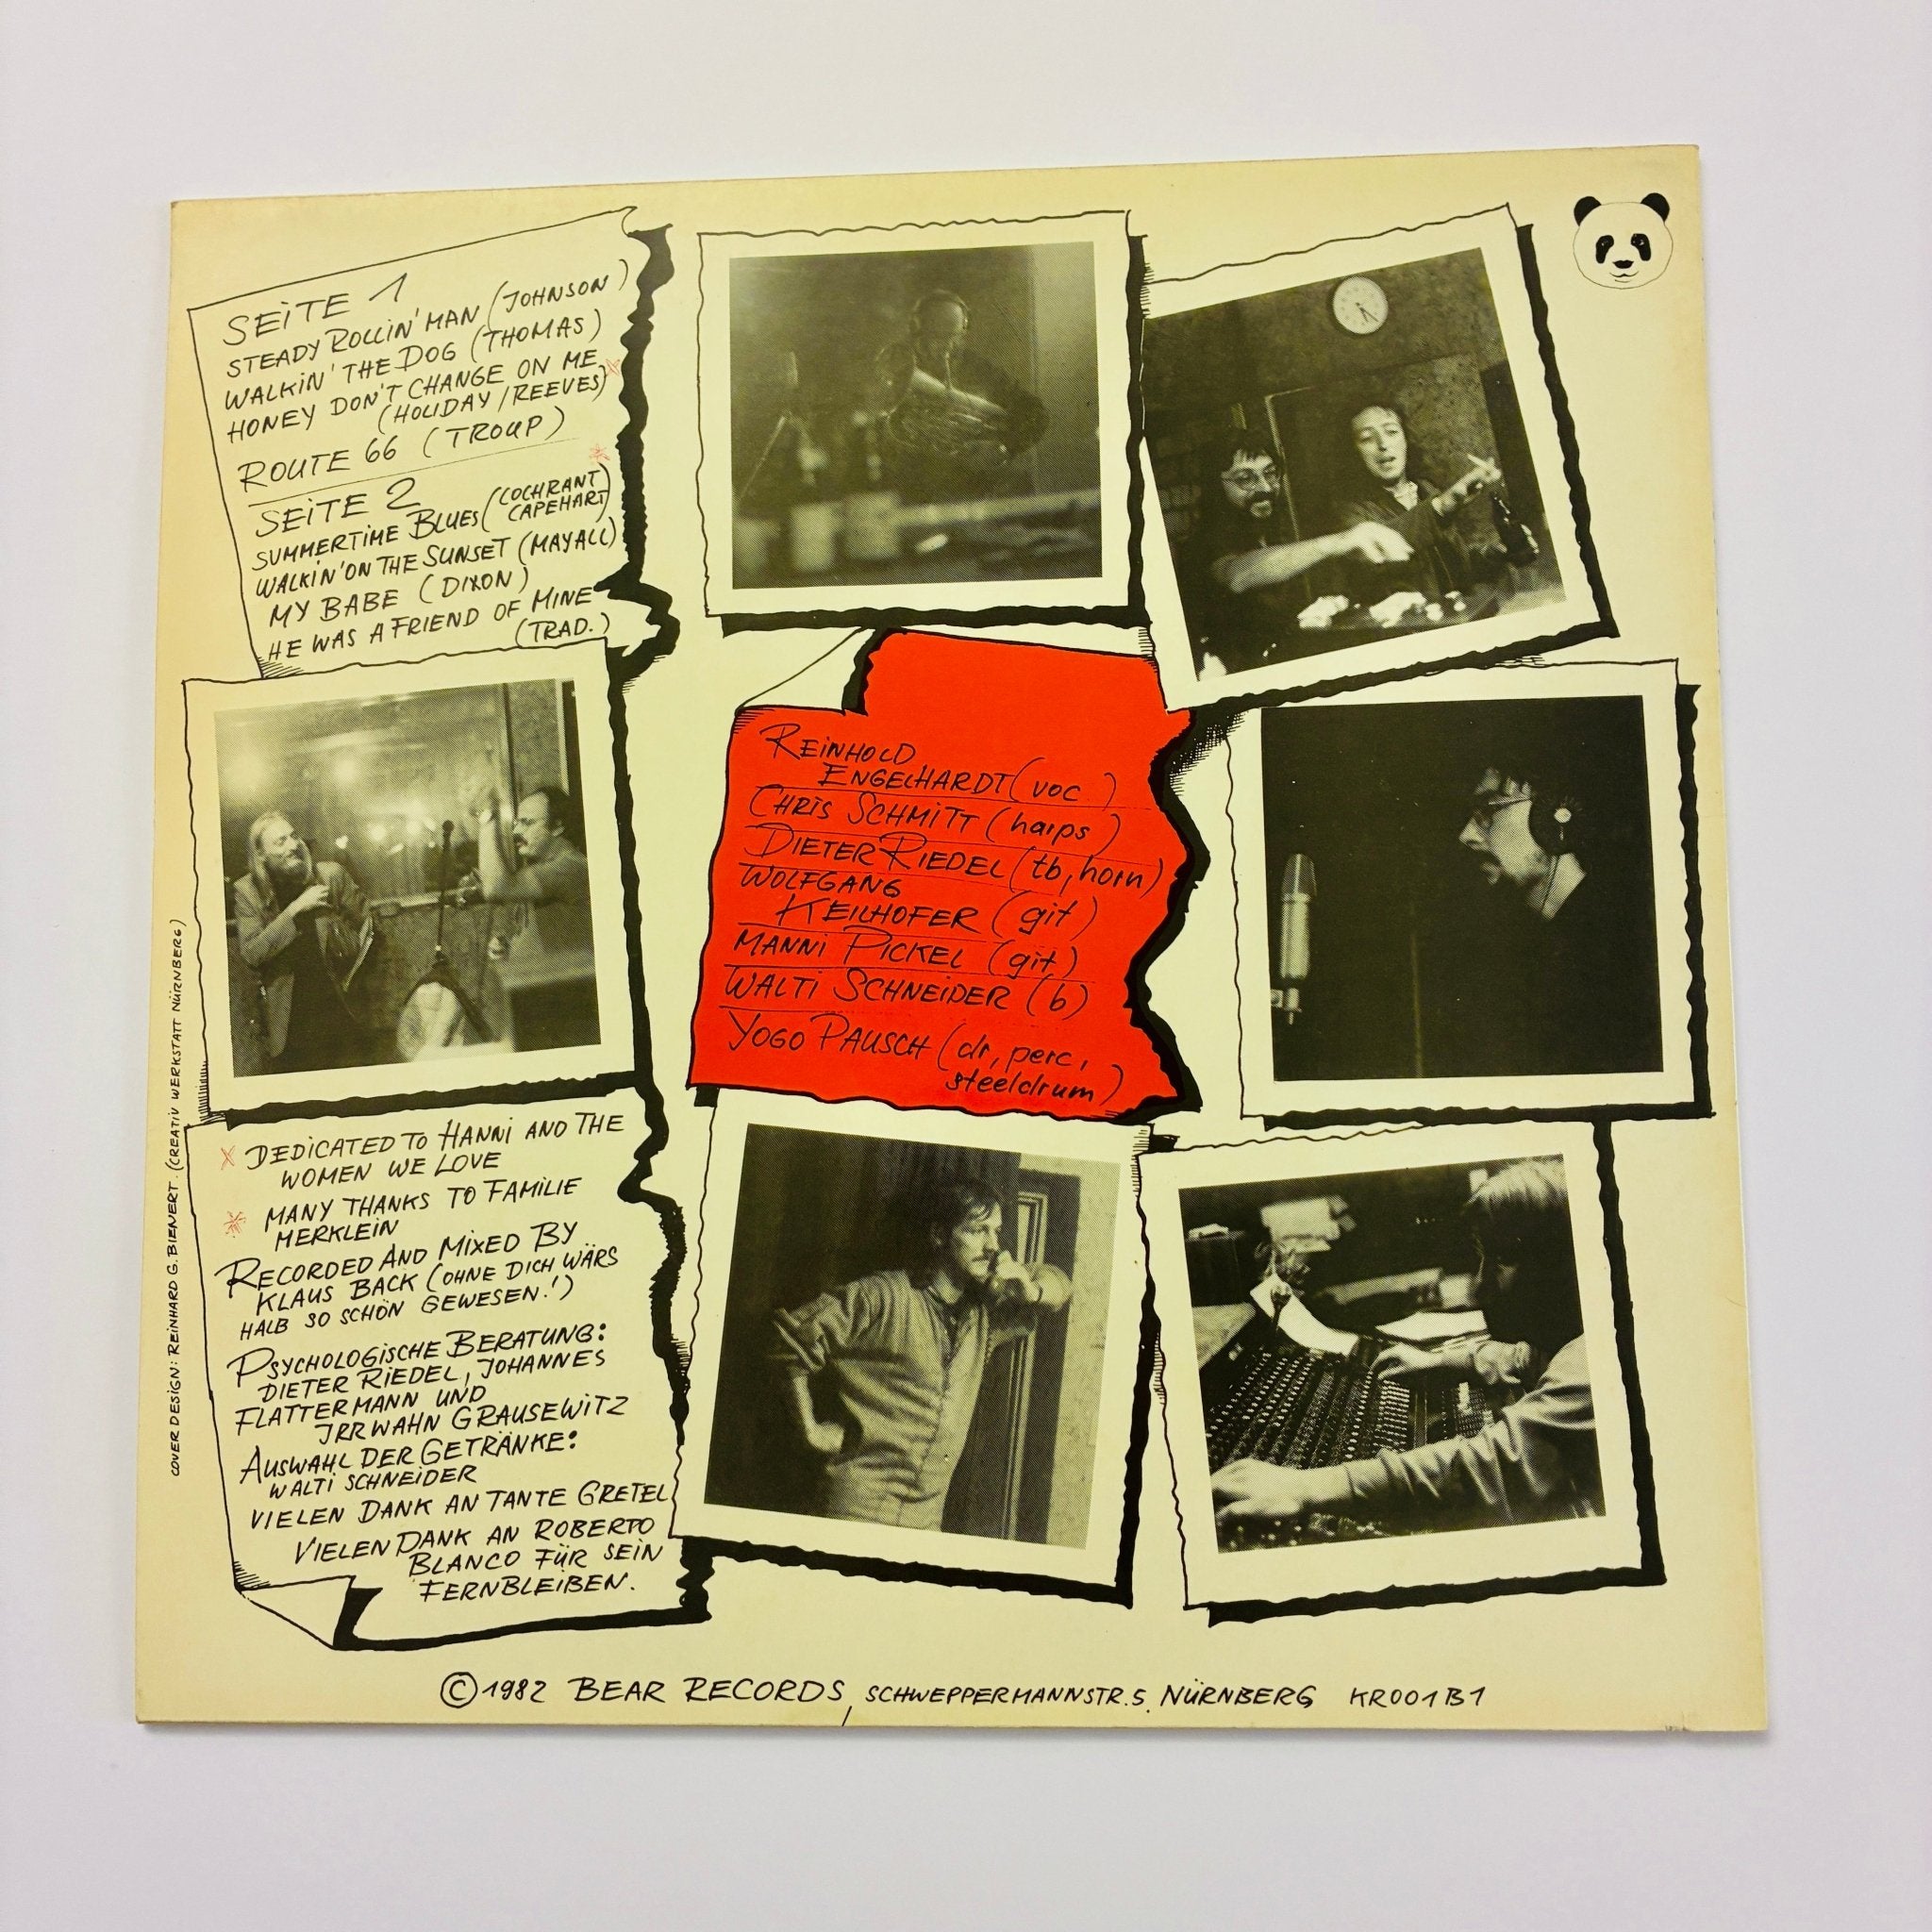 SEITE 1
STEADY ROLLIN' MAN (JOHNSON)
WALKIN' THE DOG (THOMAS)
HONEY DON'T CHANGE ON ME
(HOLIDAY/REEVES)
ROUTE 66 (TROUP)
SEITE 2
SUMMERTIME BLUES (COCHRANT
CAPEHART)
WALKIN' ON THE SUNSET (MAYALL)
MY BABE (DIXON)
HE WAS A FRIEND OF MINE
(TRAD.)
REINHOLD
ENGELHARDT (voc.)
CHRIS SCHMITT (harps)
DIETER RIEDEL (tb, horn)
WOLFGANG
KEILHOFER (git)
MANNI PICKEL (git)
WALTI SCHNEIDER (b)
YOGO PAUSCH (dr, perc,
steeldrum)
DEDICATED TO HANNI AND THE
WOMEN WE LOVE
MANY THANKS TO FAMILIE
MERKLEIN
RECORDED AND MIXED BY
KLAUS BACK (OHNE DICH WÄRS
HALB SO SCHÖN GEWESEN!)
PSYCHOLOGISCHE BERATUNG:
DIETER RIEDEL, JOHANNES
FLATTERMANN UND
IRRWAHN GRAUSEWITZ
AUSWAHL DER GETRÄNKE:
WALTI SCHNEIDER
VIELEN DANK AN TANTE GRETEL
VIELEN DANK AN ROBERTO
BLANCO FÜR SEIN
FERNBLEIBEN.
COVER DESIGN: REINHARD G. BIENERT. (CREATIV WERKSTATT NÜRNBERG)
©1982 BEAR RECORDS, SCHWEPPERMANNSTR. 5, NÜRNBERG KR001B1